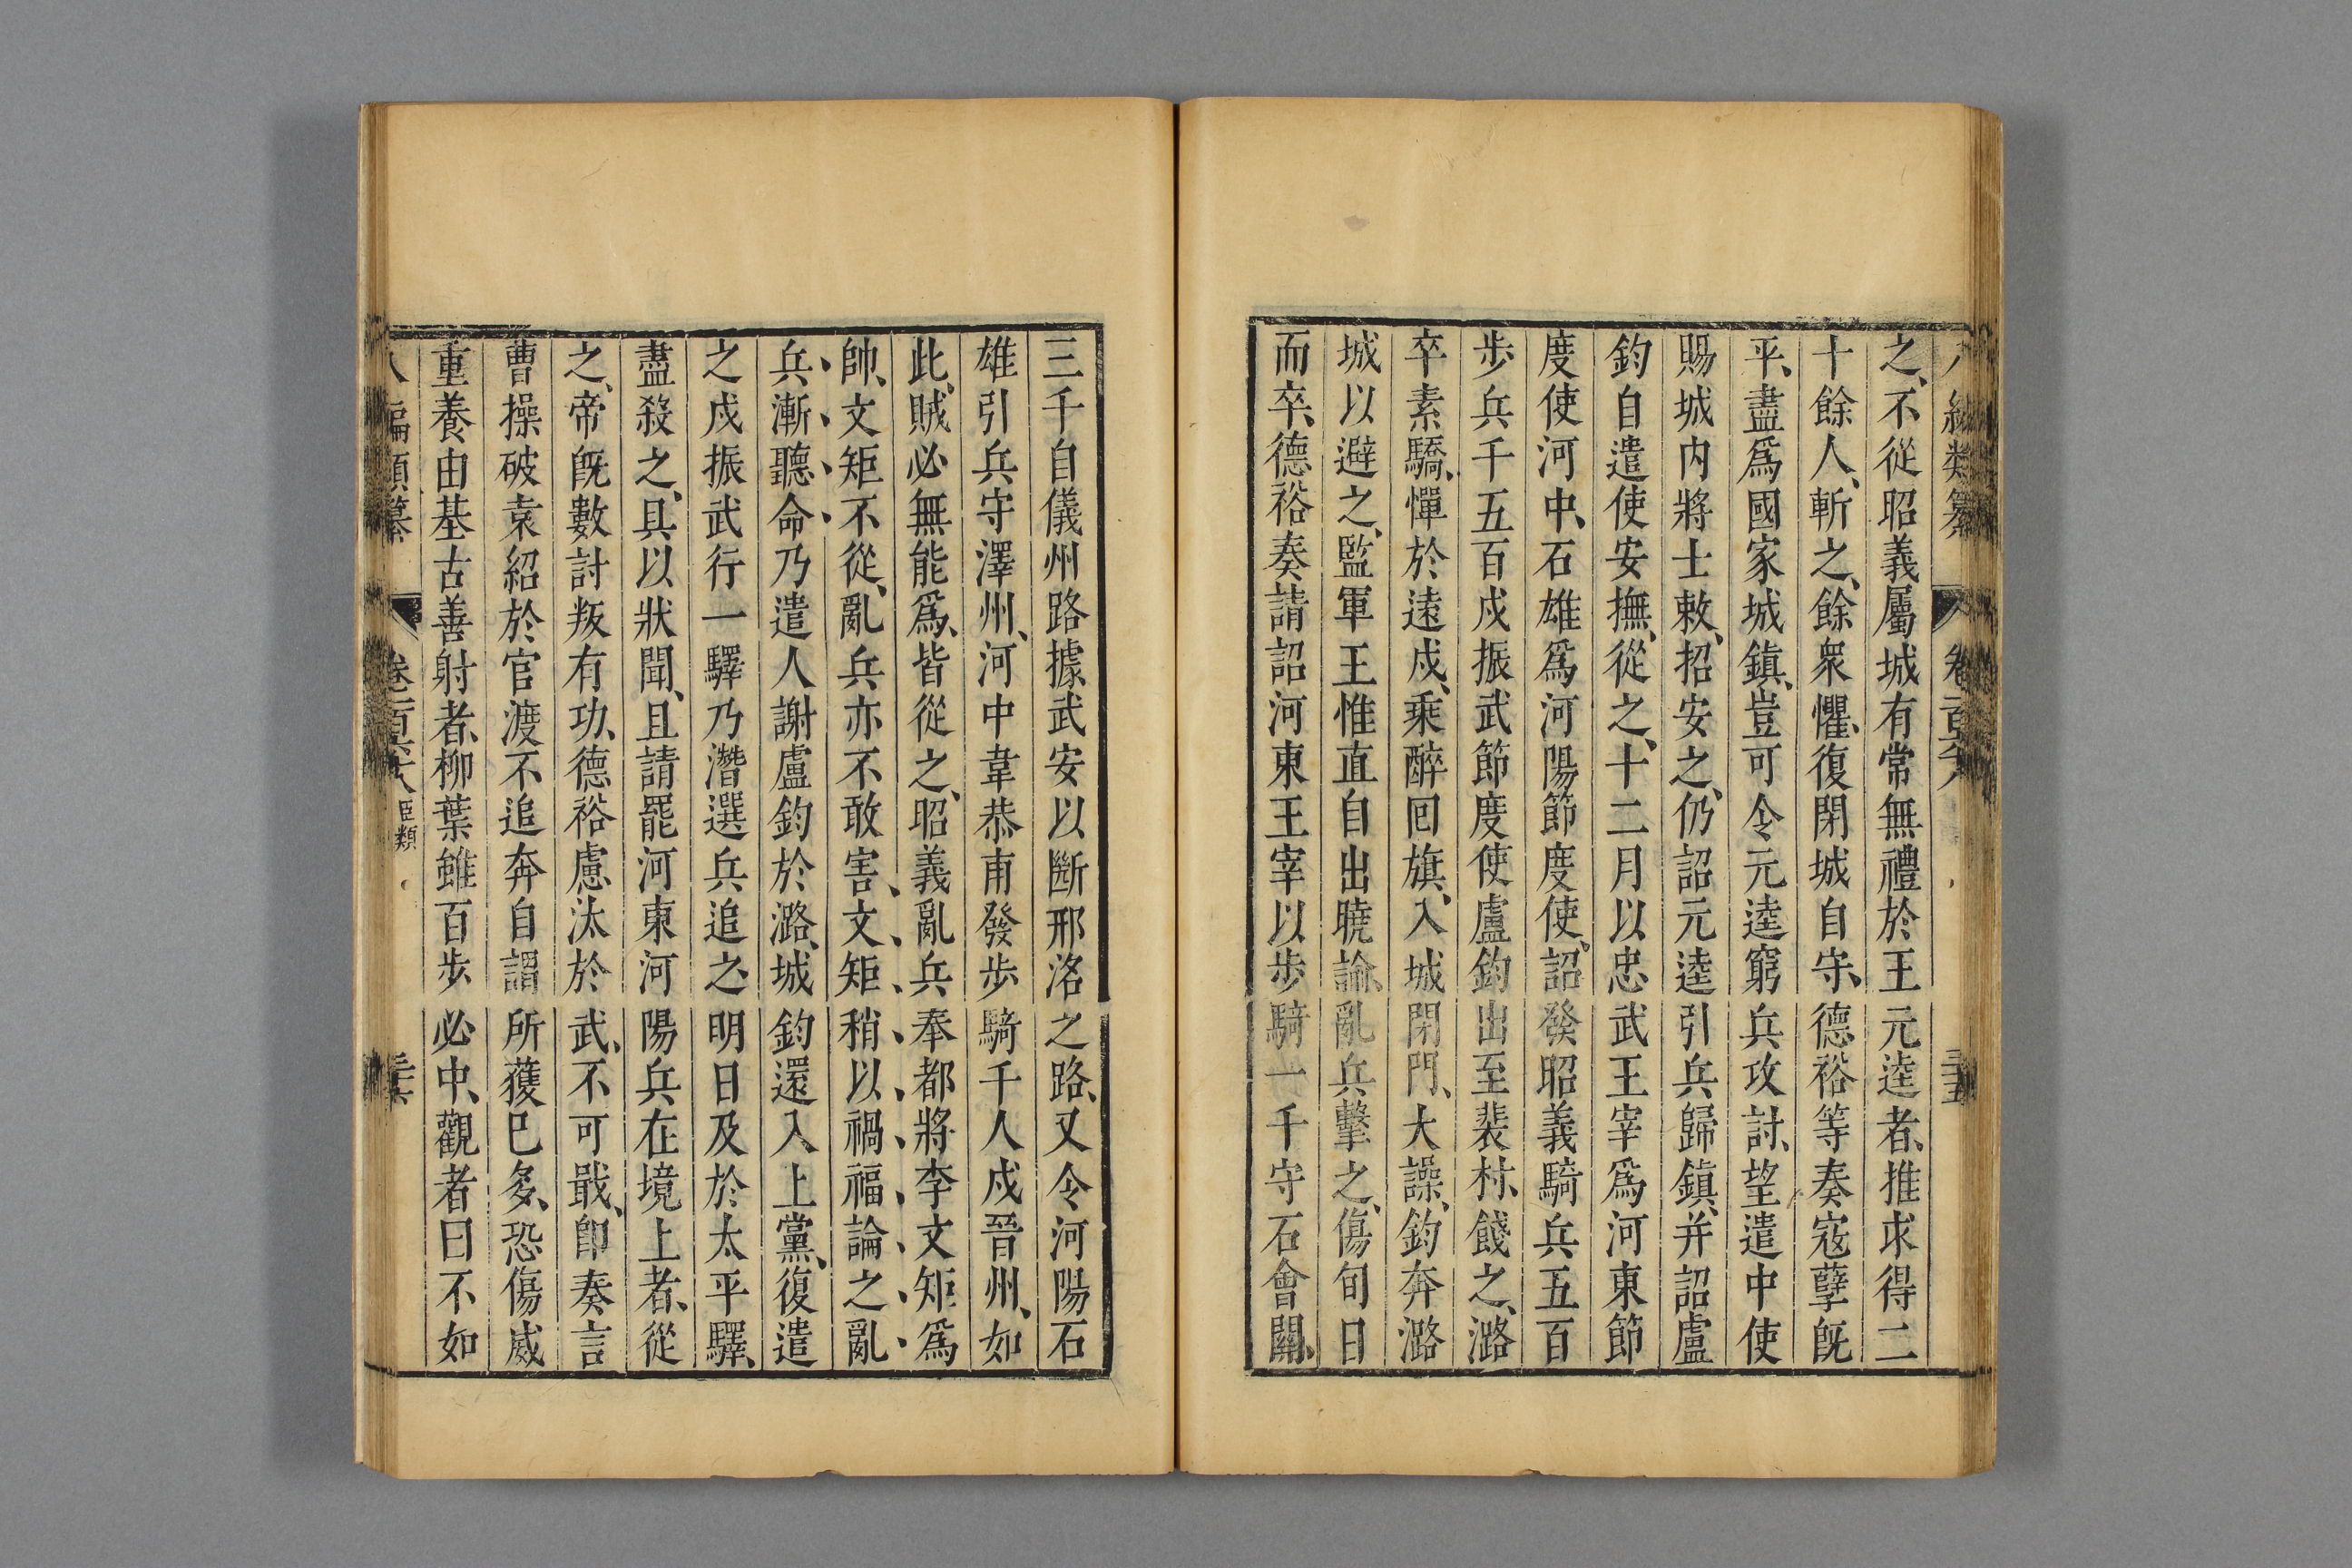 之、不從昭義屬城有常無禮於王元逵者、推求得二
十餘人、斬之、餘衆懼、復閉城自守、德裕等奏寇孽旣
平、盡爲國家城鎮、豈可令元逵窮兵攻討、望遣中使
賜城内將士敕、招安之、仍詔元逵引兵歸鎮、并詔盧
鈞自遣使安撫、從之、十二月以忠武王宰爲河東節
度使河中、石雄爲河陽節度使、詔發昭義騎兵五百
步兵千五百戍振武節度使盧鈞出至裴村、餞之、潞
卒素驕、憚於遠戍、乘醉回旗、入城閉門、大譟、鈞奔潞
城以避之、監軍王惟直自出曉諭、亂兵擊之、傷旬日
而卒、德裕奏請詔河東王宰以步騎一千守石會關、
三千自儀州路據武安以斷邢洺之路、又令河陽石
雄引兵守澤州、河中韋恭甫發步騎千人戍晉州、如
此、賊必無能爲、皆從之、昭義亂兵奉都將李文矩爲
帥、文矩不從、亂兵亦不敢害、文矩稍以禍福論之、亂
兵漸聽命乃遣人謝盧鈞於潞、城鈞還入上黨、復遣
之戍振武行一驛乃潛選兵追之明日及於太平驛、
盡殺之、具以狀聞、且請罷河東河陽兵在境上者、從
之、帝旣數討叛有功、德裕慮汰於武、不可戢、卽奏言
曹操破袁紹於官渡不追奔自謂所獲已多、恐傷威
重養由基古善射者、柳葉雖百步必中、觀者曰不如